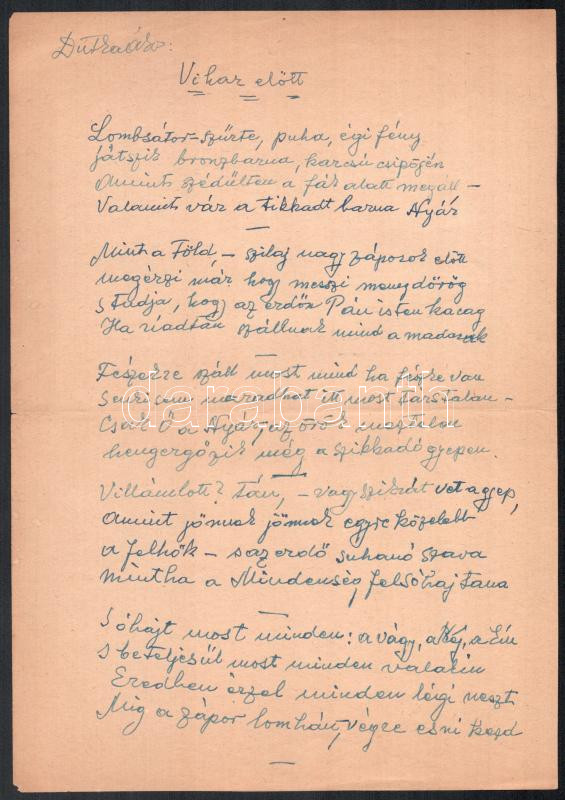 Dutka Ákos:
Vihar előtt
Lombsátor-szűrte, puha, égi fény
játszik bronzbarna, karcsú csipőjén
Amint szédülten a fák alatt megáll –
Valamit vár a tikkadt barna Nyár
Mint a Föld – szilaj nagy záporok előtt
megérzi már hogy messzi menydörög
S tudja, hogy az erdőn Pán isten kacag
Ha riadtan szállnak mind a madarak
Fészekre száll most mind ha fészke van
Senki sem maradhat itt most társtalan –
Csak Ő a Nyár, az örök meztelen
hengergőzik még a szikkadó gyepen.
Villámlott? tán, – vagy szikrát vet a gyep,
Amint jönnek jönnek egyre közelebb
a felhők – s az erdő suhanó szava
mintha a Mindenség felsóhajtana
Sóhajt most minden: a vágy, a Kéj, a
S beteljesül most minden valakin
Eredben érzel minden légi neszt
Mig a zápor lomhán, végre esni kezd
darabanth